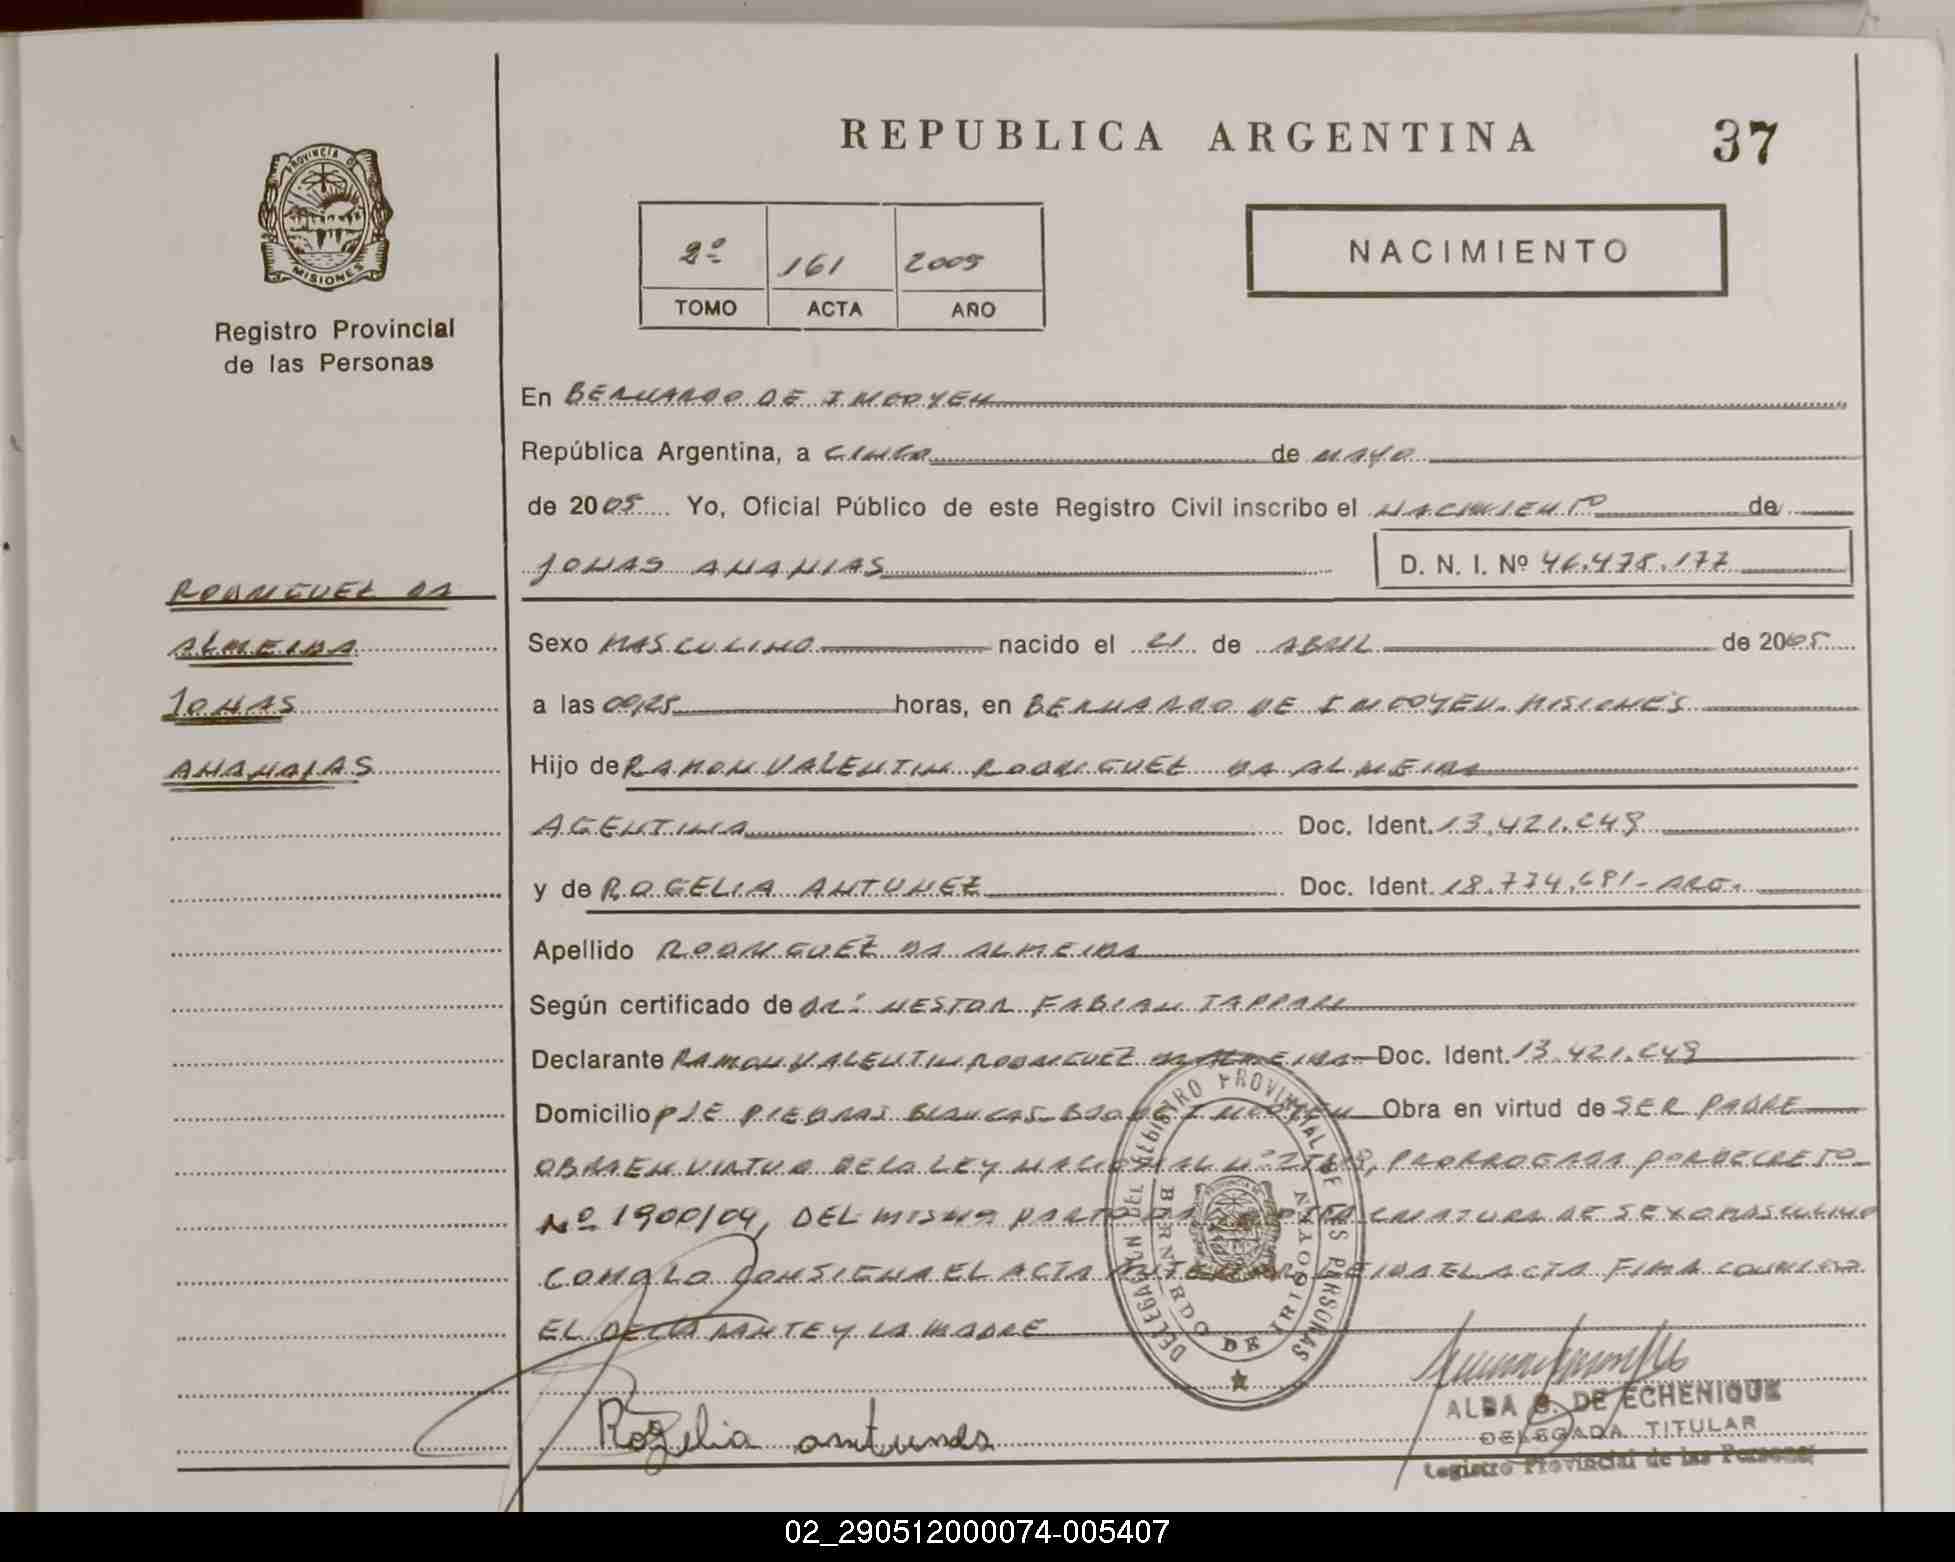 REPUBLICA ARGENTINA
37
PROVINCIA DE
MISIONES
Registro Provincial
de las Personas
2º 161 2005
TOMO ACTA AÑO
NACIMIENTO
En BERNARDO DE IRIGOYEN
República Argentina, a CINCO de MAYO
de 2005 Yo, Oficial Público de este Registro Civil inscribo el NACIMIENTO de
JONAS ANANIAS D. N. I. Nº 46.478.177
RODRIGUEZ DA
ALMEIDA
JONAS
ANANIAS
Sexo MASCULINO nacido el 21 de ABRIL de 2005
a las 00,25 horas, en BERNARDO DE IRIGOYEN. MISIONES
Hijo de RAMON VALENTIN RODRIGUEZ DA ALMEIDA
AGENTINA Doc. Ident. 13.421.649
y de ROGELIA ANTUNEZ Doc. Ident. 18.774.681 - ARG.
Apellido RODRIGUEZ DA ALMEIDA
Según certificado de DR: NESTOR FABIAN
Declarante RAMON VALENTIN RODRIGUEZ DA ALMEIDA Doc. Ident. 13.421.649
Domicilio PJE PIEDRAS BLANCAS-BDO DE IRIGOYEN Obra en virtud de SER PADRE
OBRA EN VIRTUD DE LA LEY NACIONAL Nº PRORROGADA POR DECRETO
Nº 1900/04, DEL MISMO PARTO CRIATURA DE SEXO MASCULINO
COMO LO CONSIGNA EL ACTA ANTERIOR LEIDA EL ACTA FIRMA CONMIGO
EL DECLARANTE Y LA MADRE
DELEGACION DEL REGISTRO PROVINCIAL DE LAS PERSONAS
BERNARDO DE IRIGOYEN
Rogelia antunes
ALBA S. DE ECHENIQUE
DELEGADA TITULAR
Registro Provincial de las Personas
02_290512000074-005407